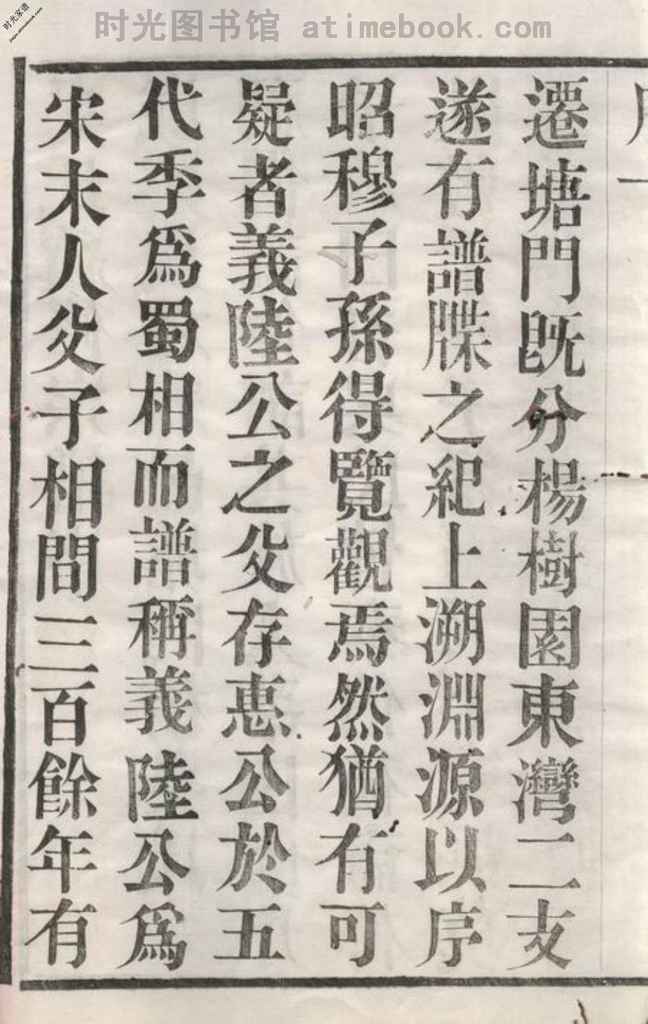 时光图书馆 atimebook.com
时光家谱
遷塘門既分楊樹園東灣二支
遂有譜牒之紀上溯淵源以序
昭穆子孫得覽觀焉然猶有可
疑者義陸公之父存惠公於五
代季爲蜀相而譜稱義陸公爲
宋末人父子相問三百餘年有